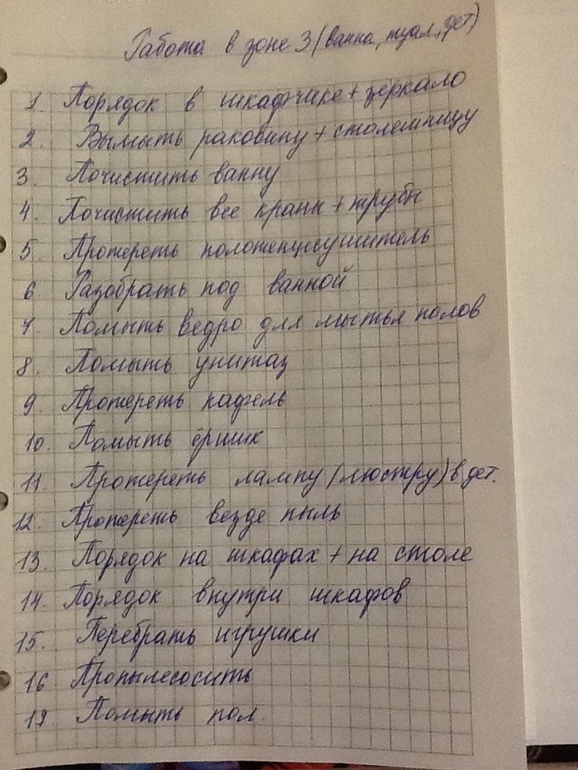 Работа в зоне 3 (ванна, туал., дет)
1. Порядок в шкафчике + зеркало
2. Вымыть раковину + столешницу
3. Почистить ванну
4. Почистить все краны + трубы
5. Протереть полотенцесушитель
6 Разобрать под ванной
7. Помыть ведро для мытья полов
8. Помыть унитаз
9. Протереть кафель
10. Помыть ёршик
11. Протереть лампу (люстру) в дет.
12. Протереть везде пыль
13. Порядок на шкафах + на столе
14. Порядок внутри шкафов
15. Перебрать игрушки
16 Пропылесосить
17 Помыть пол.